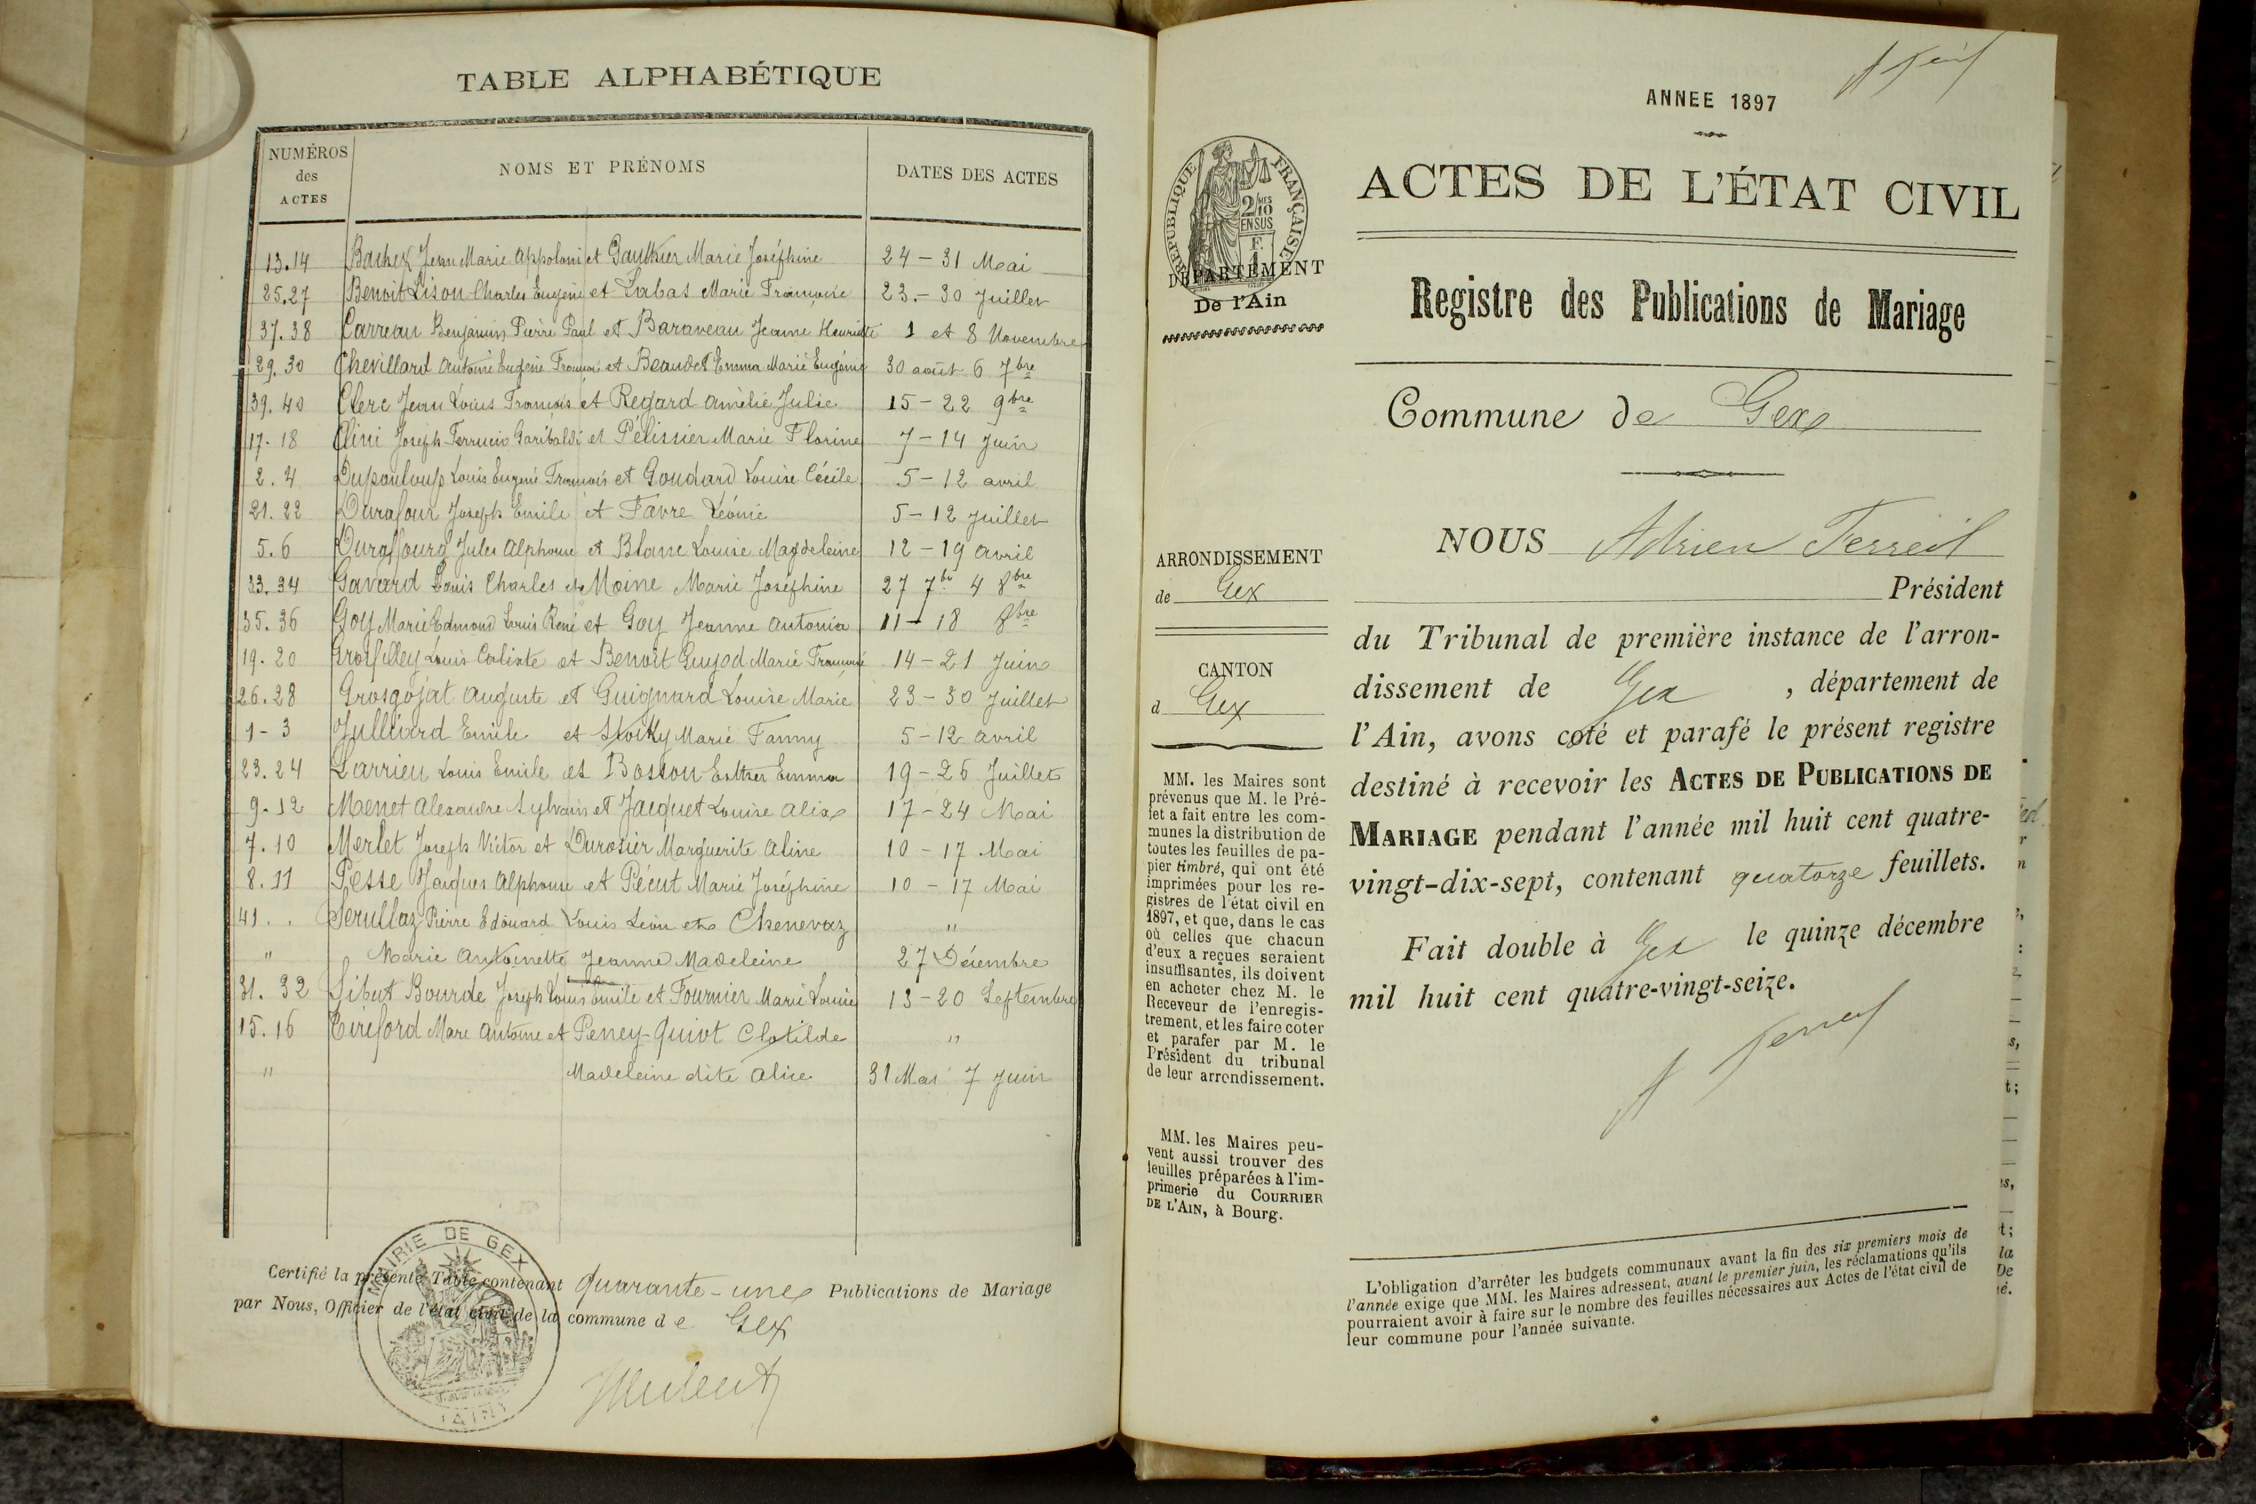 TABLE ALPHABÉTIQUE
NUMÉROS
des
ACTES
NOMS ET PRÉNOMS
DATES DES ACTES
13.14 Jean Marie Appoloni et Gauthier Marie Joséphine 24 - 31 Mai
25.27 Benoit Lison Charles Eugène et Labas Marie Françoise 23. - 30 Juillet
37.38 Carreau Benjamin Pierre Paul et Baraveau Jeanne Henriette 1 et 8 Novembre
29.30 Chevillard Antoine Eugène François et Beaudet Emma Marie Eugénie 30 août 6 7bre
39.40 Clerc Jean Louis François et Regard Amélie Julie 15 - 22 9bre
17.18 Clini Joseph Ferrucio Garibaldi et Pélissier Marie Florine 7 - 14 Juin
2.4 Dupanloup Louis Eugène François et Goudard Louise Cécile 5 - 12 avril
21.22 Durafour Joseph Emile et Favre Léonie 5 - 12 Juillet
5.6 Duraffourg Jules Alphonse et Blanc Louise Magdeleine 12 - 19 avril
33.34 Gavard Louis Charles et Moine Marie Joséphine 27 7bre 4 8bre
35.36 Goy Marie Edmond Louis René et Goy Jeanne Antonia 11 - 18 8bre
19.20 Grosfilley Louis Calixte et Benoit Guyod Marie Françoise 14 - 21 Juin
26.28 Grosgojat Auguste et Guignard Louise Marie 23 - 30 Juillet
1-3 Julliard Emile et Marie Fanny 5 - 12 avril
23.24 Larrieu Louis Emile et Bosson Esther Emma 19 - 26 Juillet
9.12 Menet Alexandre Sylvain et Jacquet Louise Alix 17 - 24 Mai
7.10 Merlet Joseph Victor et Durosier Marguerite Aline 10 - 17 Mai
8.11 Pesse Jacques Alphonse et Pécut Marie Joséphine 10 - 17 Mai
41. . Serullaz Pierre Edouard Louis Léon et Chenevaz "
" Marie Antoinette Jeanne Madeleine 27 Décembre
31.32 Sibut Bourde Joseph Louis Emile et Fournier Marie Louise 13 - 20 Septembre
15.16 Tireford Marc Antoine et Peney Quiot Clotilde "
" Madeleine dite Alice 31 Mai 7 Juin
Certifié la présente Table contenant quarante-une Publications de Mariage
par Nous, Officier de l'état civil de la commune de Gex
MAIRIE DE GEX
(AIN)
ANNEE 1897
ACTES DE L'ÉTAT CIVIL
RÉPUBLIQUE FRANÇAISE
2/10 MES
EN SUS
F.
1
DÉPARTEMENT
De l'Ain
Registre des Publications de Mariage
Commune de Gex
ARRONDISSEMENT
de Gex
CANTON
d Gex
MM. les Maires sont
prévenus que M. le Pré-
fet a fait entre les com-
munes la distribution de
toutes les feuilles de pa-
pier timbré, qui ont été
imprimées pour les re-
gistres de l'état civil en
1897, et que, dans le cas
où celles que chacun
d'eux a reçues seraient
insuffisantes, ils doivent
en acheter chez M. le
Receveur de l'enregis-
trement, et les faire coter
et parafer par M. le
Président du tribunal
de leur arrondissement.
MM. les Maires peu-
vent aussi trouver des
feuilles préparées à l'im-
primerie du COURRIER
DE L'AIN, à Bourg.
NOUS Adrien Ferreil
Président
du Tribunal de première instance de l'arron-
dissement de Gex , département de
l'Ain, avons coté et parafé le présent registre
destiné à recevoir les ACTES DE PUBLICATIONS DE
MARIAGE pendant l'année mil huit cent quatre-
vingt-dix-sept, contenant quatorze feuillets.
Fait double à Gex le quinze décembre
mil huit cent quatre-vingt-seize.
L'obligation d'arrêter les budgets communaux avant la fin des six premiers mois de
l'année exige que MM. les Maires adressent, avant le premier juin, les réclamations qu'ils
pourraient avoir à faire sur le nombre des feuilles nécessaires aux Actes de l'état civil de
leur commune pour l'année suivante.